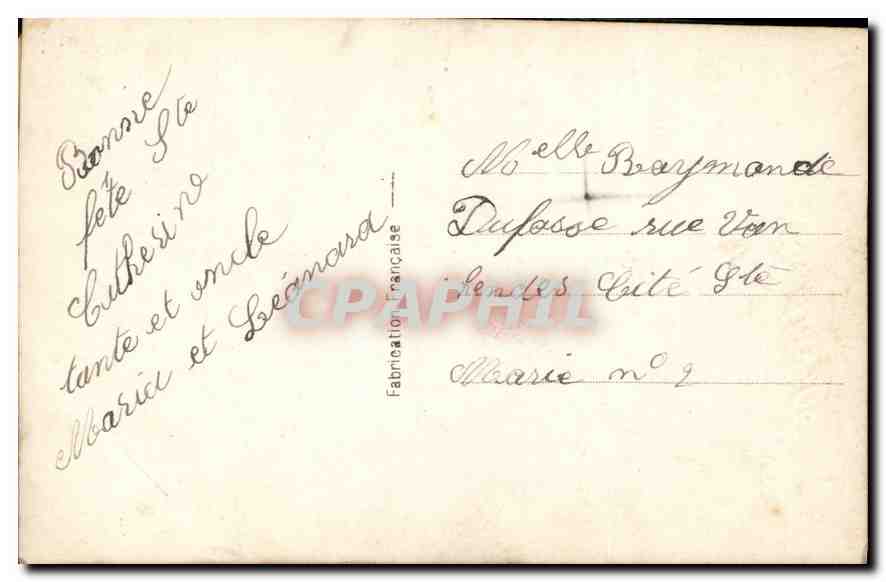 Bonne
fête Ste
Catherine
tante et oncle
Maria et Léonard
Fabrication Française
CPAPHIL
Melle Raymonde
Dufosse rue Van
Lendes Cité Ste
Marie no 2